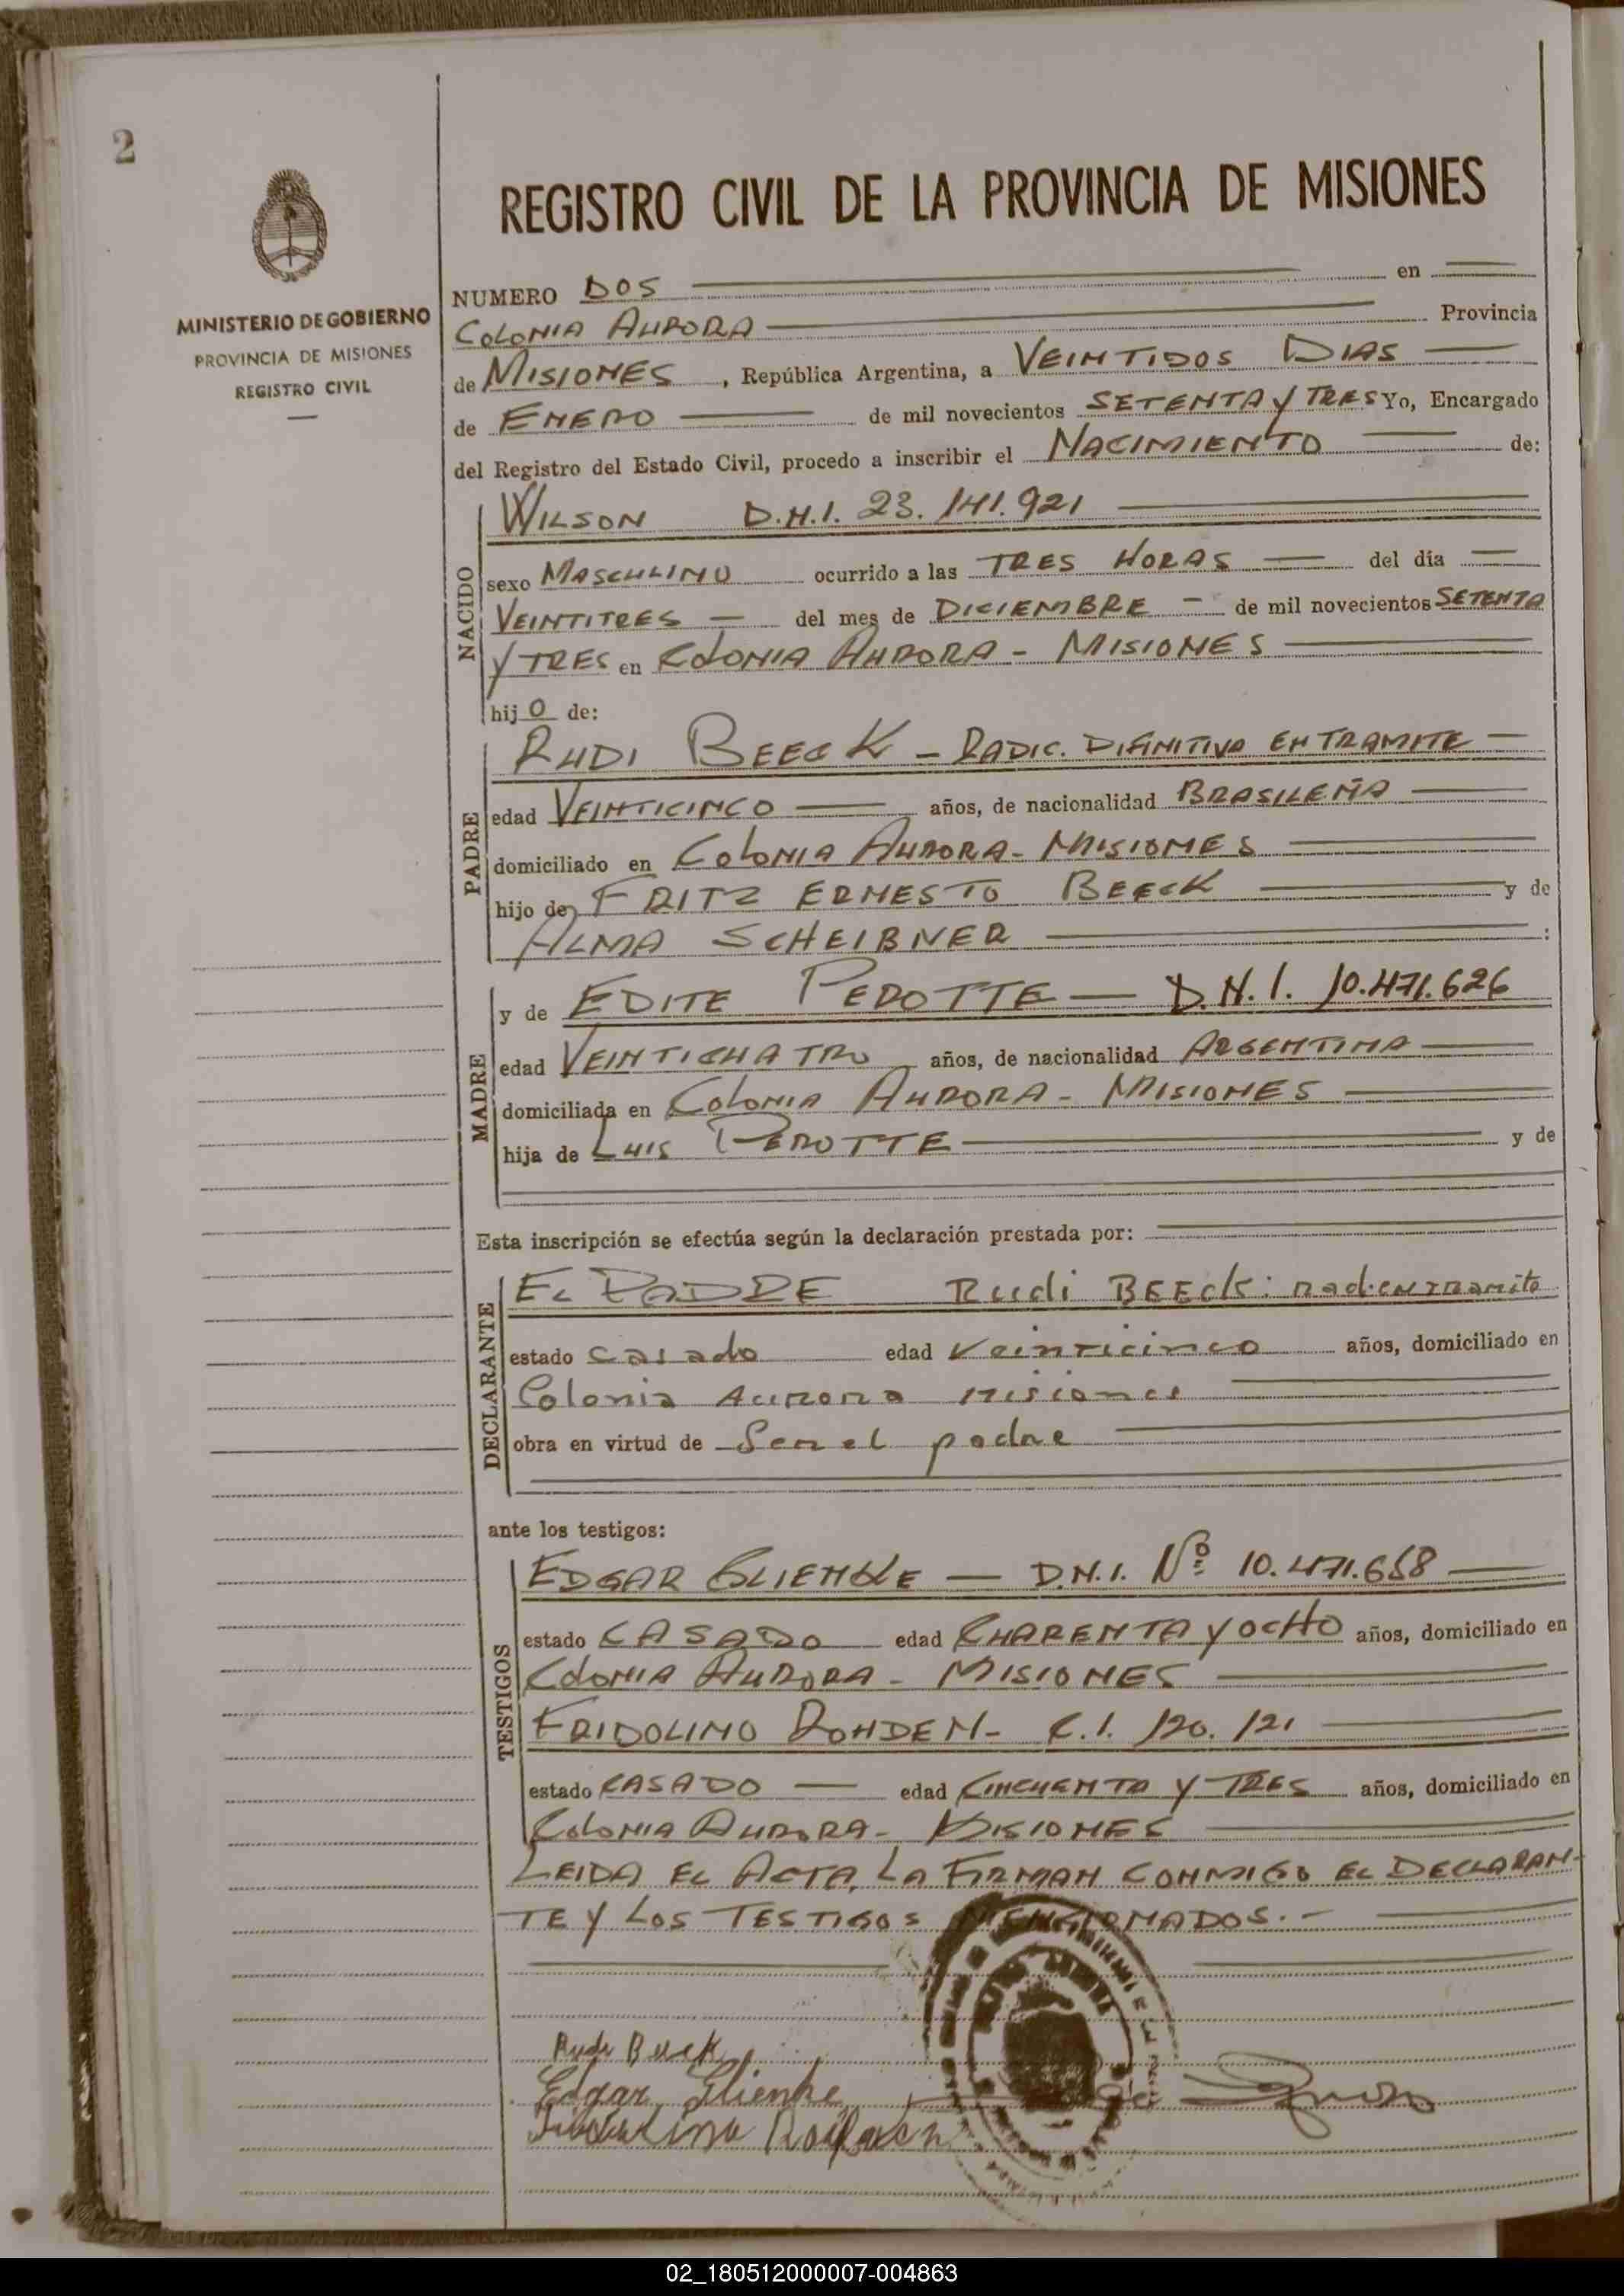 2
MINISTERIO DE GOBIERNO
PROVINCIA DE MISIONES
REGISTRO CIVIL
REGISTRO CIVIL DE LA PROVINCIA DE MISIONES
NUMERO DOS en
COLONIA AURORA Provincia
de MISIONES, República Argentina, a VEINTIDOS DIAS
de ENERO de mil novecientos SETENTA Y TRES Yo, Encargado
del Registro del Estado Civil, procedo a inscribir el NACIMIENTO de:
NACIDO
WILSON D.N.I. 23.141.921
sexo MASCULINO ocurrido a las TRES HORAS del día
VEINTITRES del mes de DICIEMBRE de mil novecientos SETENTA
Y TRES en COLONIA AURORA - MISIONES
hijo de:
PADRE
RUDI BEECK - RADIC. DIFINITIVA EN TRAMITE
edad VEINTICINCO años, de nacionalidad BRASILEÑA
domiciliado en COLONIA AURORA - MISIONES
hijo de FRITZ ERNESTO BEECK y de
ALMA SCHEIBNER :
MADRE
y de EDITE PEROTTE - D.N.I. 10.471.626
edad VEINTICUATRO años, de nacionalidad ARGENTINA
domiciliada en COLONIA AURORA - MISIONES
hija de LUIS PEROTTE y de
Esta inscripción se efectúa según la declaración prestada por:
DECLARANTE
EL PADRE Rudi BEECK: rad. en tramite
estado casado edad Veinticinco años, domiciliado en
Colonia Aurora Misiones
obra en virtud de Ser el padre
ante los testigos:
TESTIGOS
EDGAR GLIENKE - D.N.I. Nº 10.471.658
estado CASADO edad CUARENTA Y OCHO años, domiciliado en
COLONIA AURORA - MISIONES
FRIDOLINO ROHDEN - C.I. 120.121
estado CASADO edad CINCUENTA Y TRES años, domiciliado en
COLONIA AURORA - MISIONES
LEIDA EL ACTA, LA FIRMAN CONMIGO EL DECLARAN-
TE Y LOS TESTIGOS MENCIONADOS.-
Rudi Beeck
Edgar Glienke
02_180512000007-004863